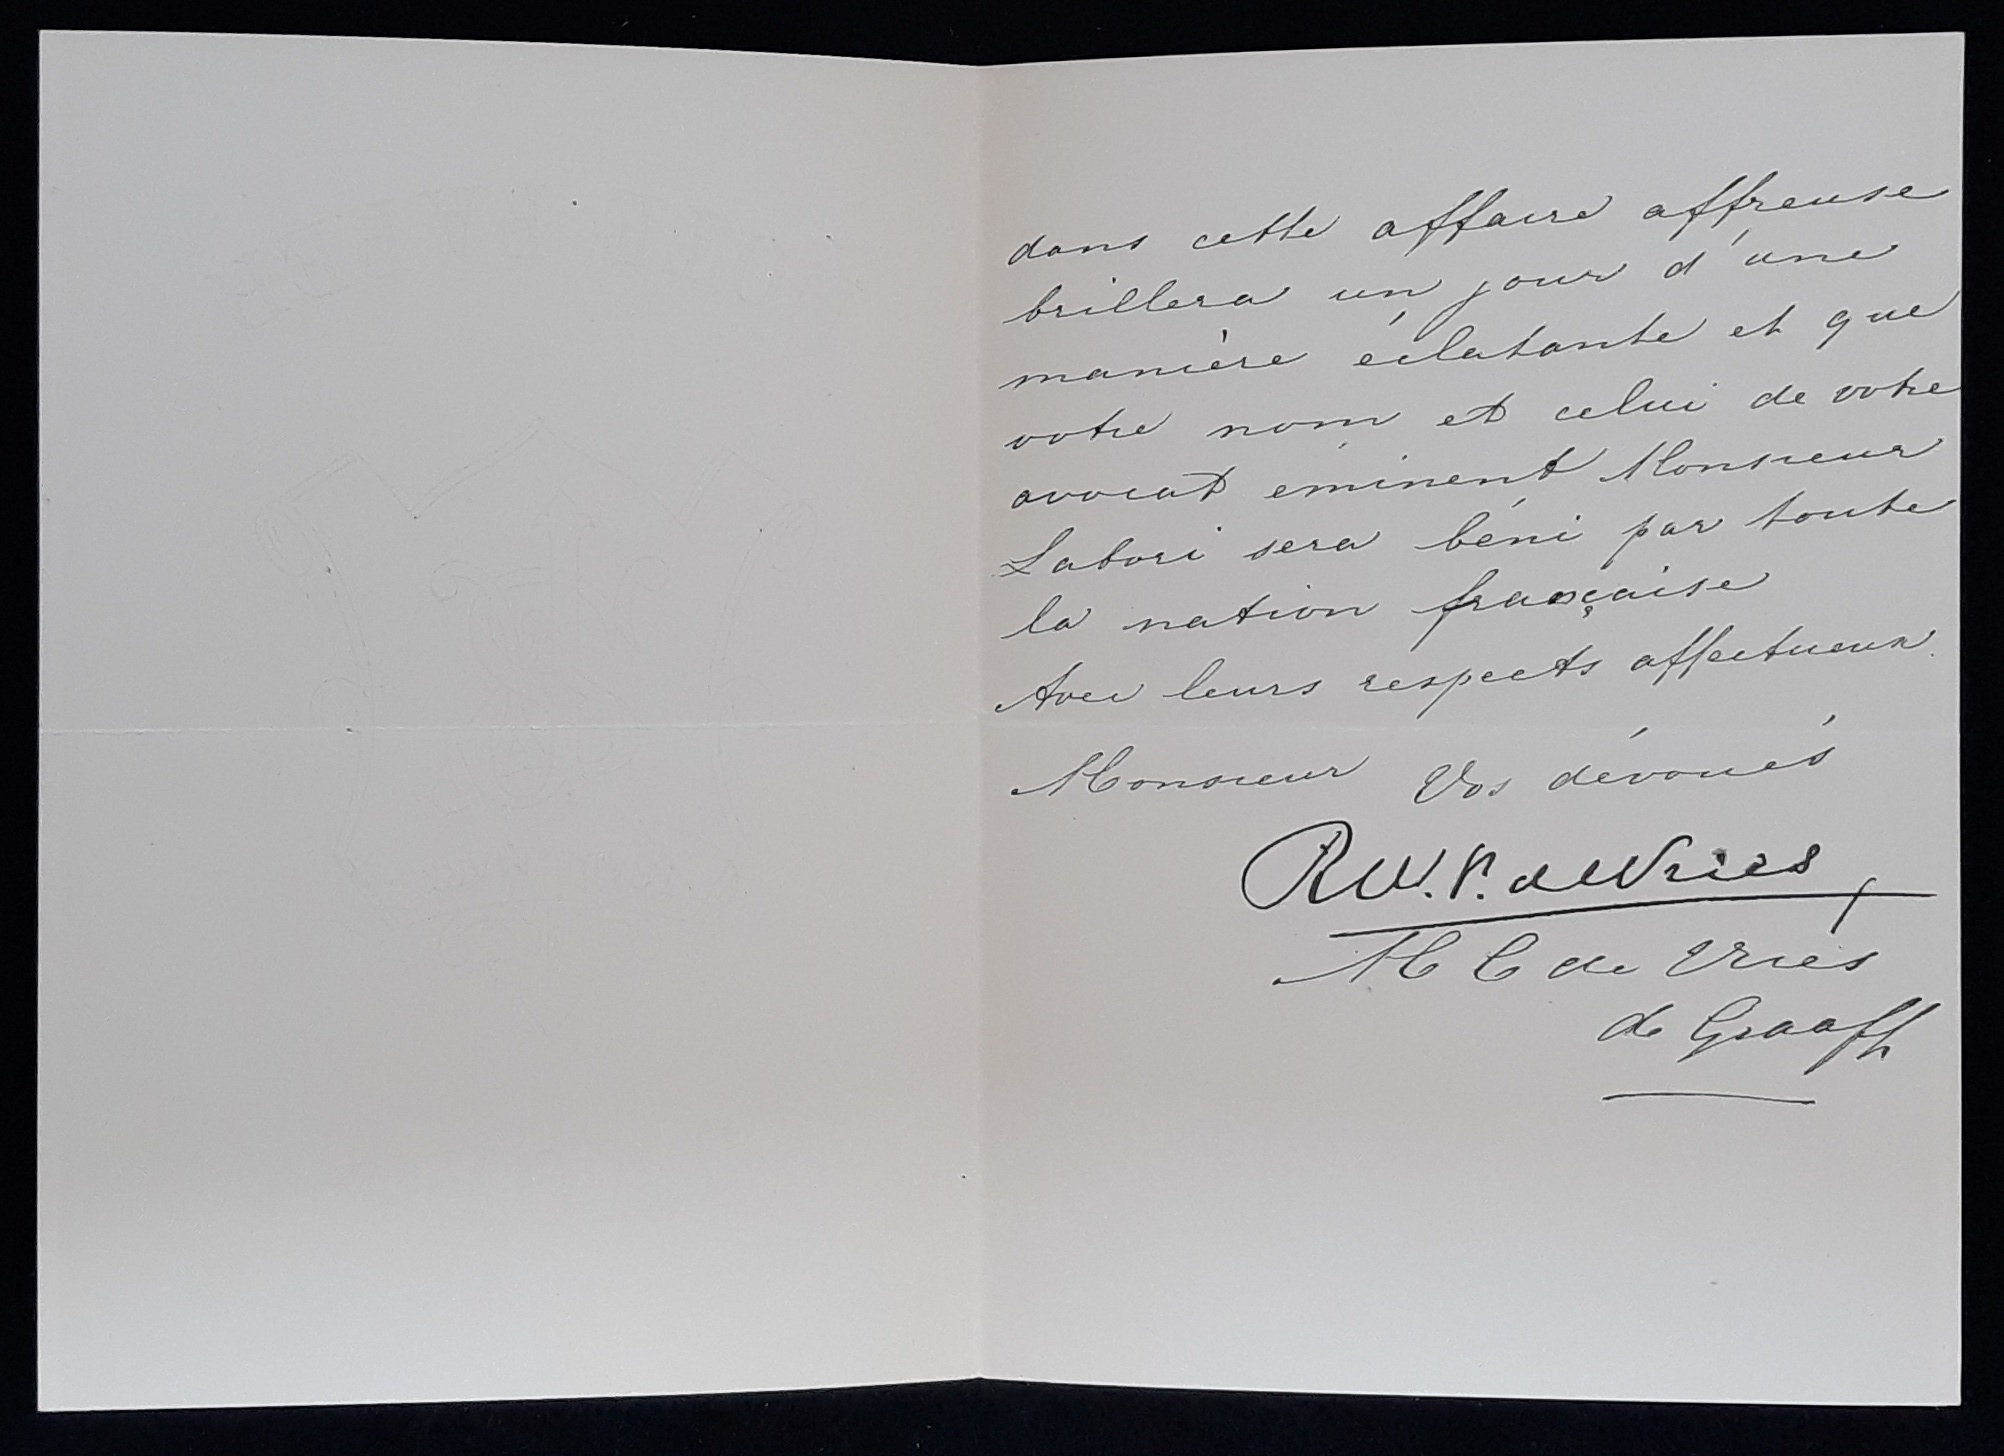 dans cette affaire affreuse
brillera un jour d'une
manière éclatante et que
votre nom et celui de votre
avocat éminent Monsieur
Labori sera béni par toute
la nation française
Avec leurs respects affectueux.
Monsieur Vos dévoués
R.W.P. de Vries,
M C de Vries
de Graaff